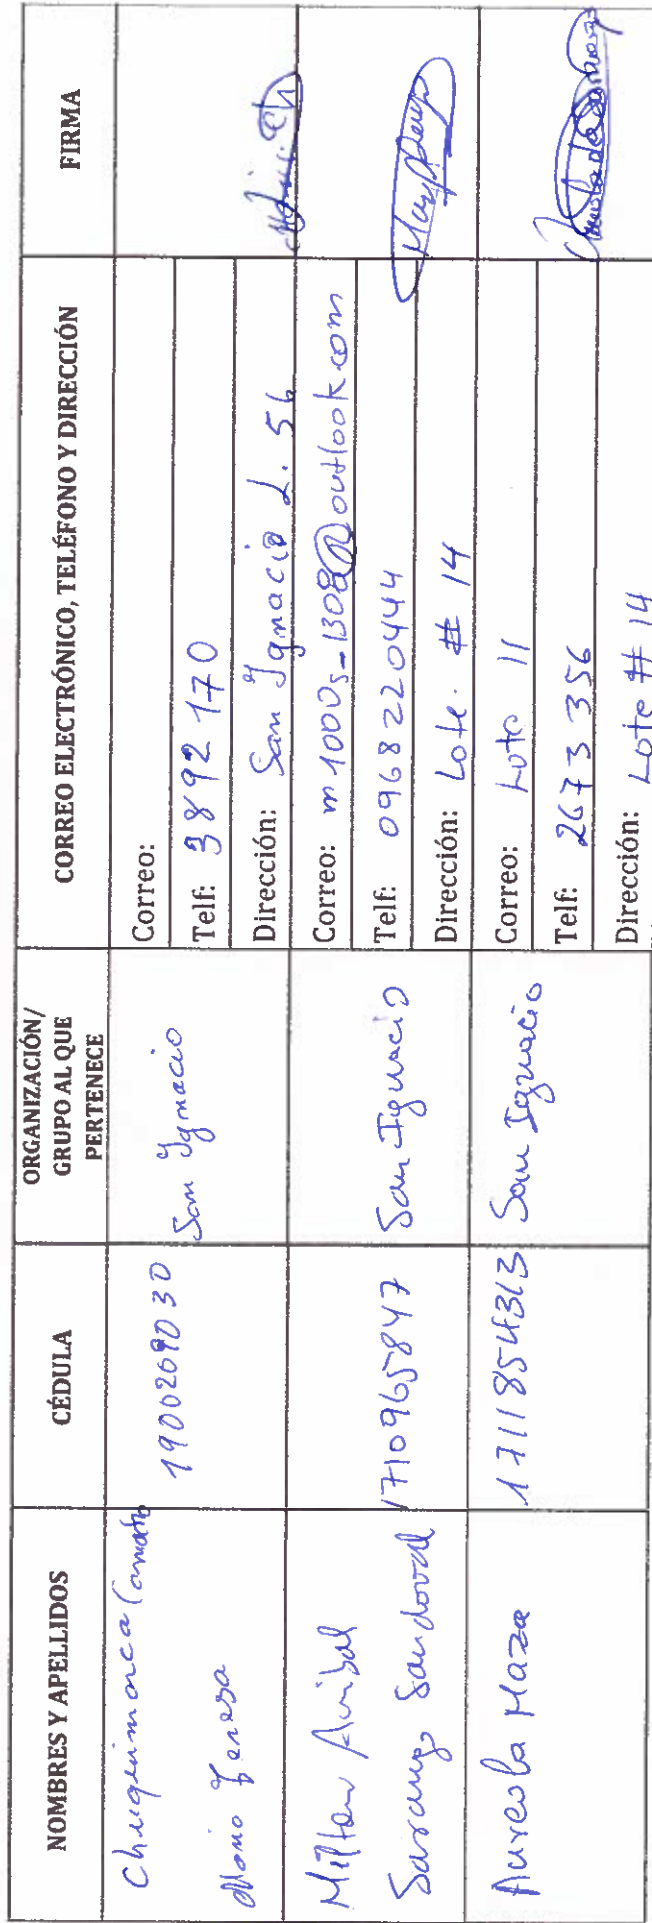 NOMBRES Y APELLIDOS
CÉDULA
ORGANIZACIÓN/
GRUPO AL QUE
PERTENECE
CORREO ELECTRÓNICO, TELÉFONO Y DIRECCIÓN
FIRMA
Chuquimarca
Maria Teresa
1900269030
San Ignacio
Correo:
Telf: 3892170
Dirección: San Ignacio L. 56
Milton Anibal
Sarango Sandoval
1710965847
San Ignacio
Correo: m1000s_1308@outlook.com
Telf: 0968220444
Dirección: Lote # 14
Aureola Maza
1711854313
San Ignacio
Correo: Lote 11
Telf: 2673356
Dirección: Lote # 14